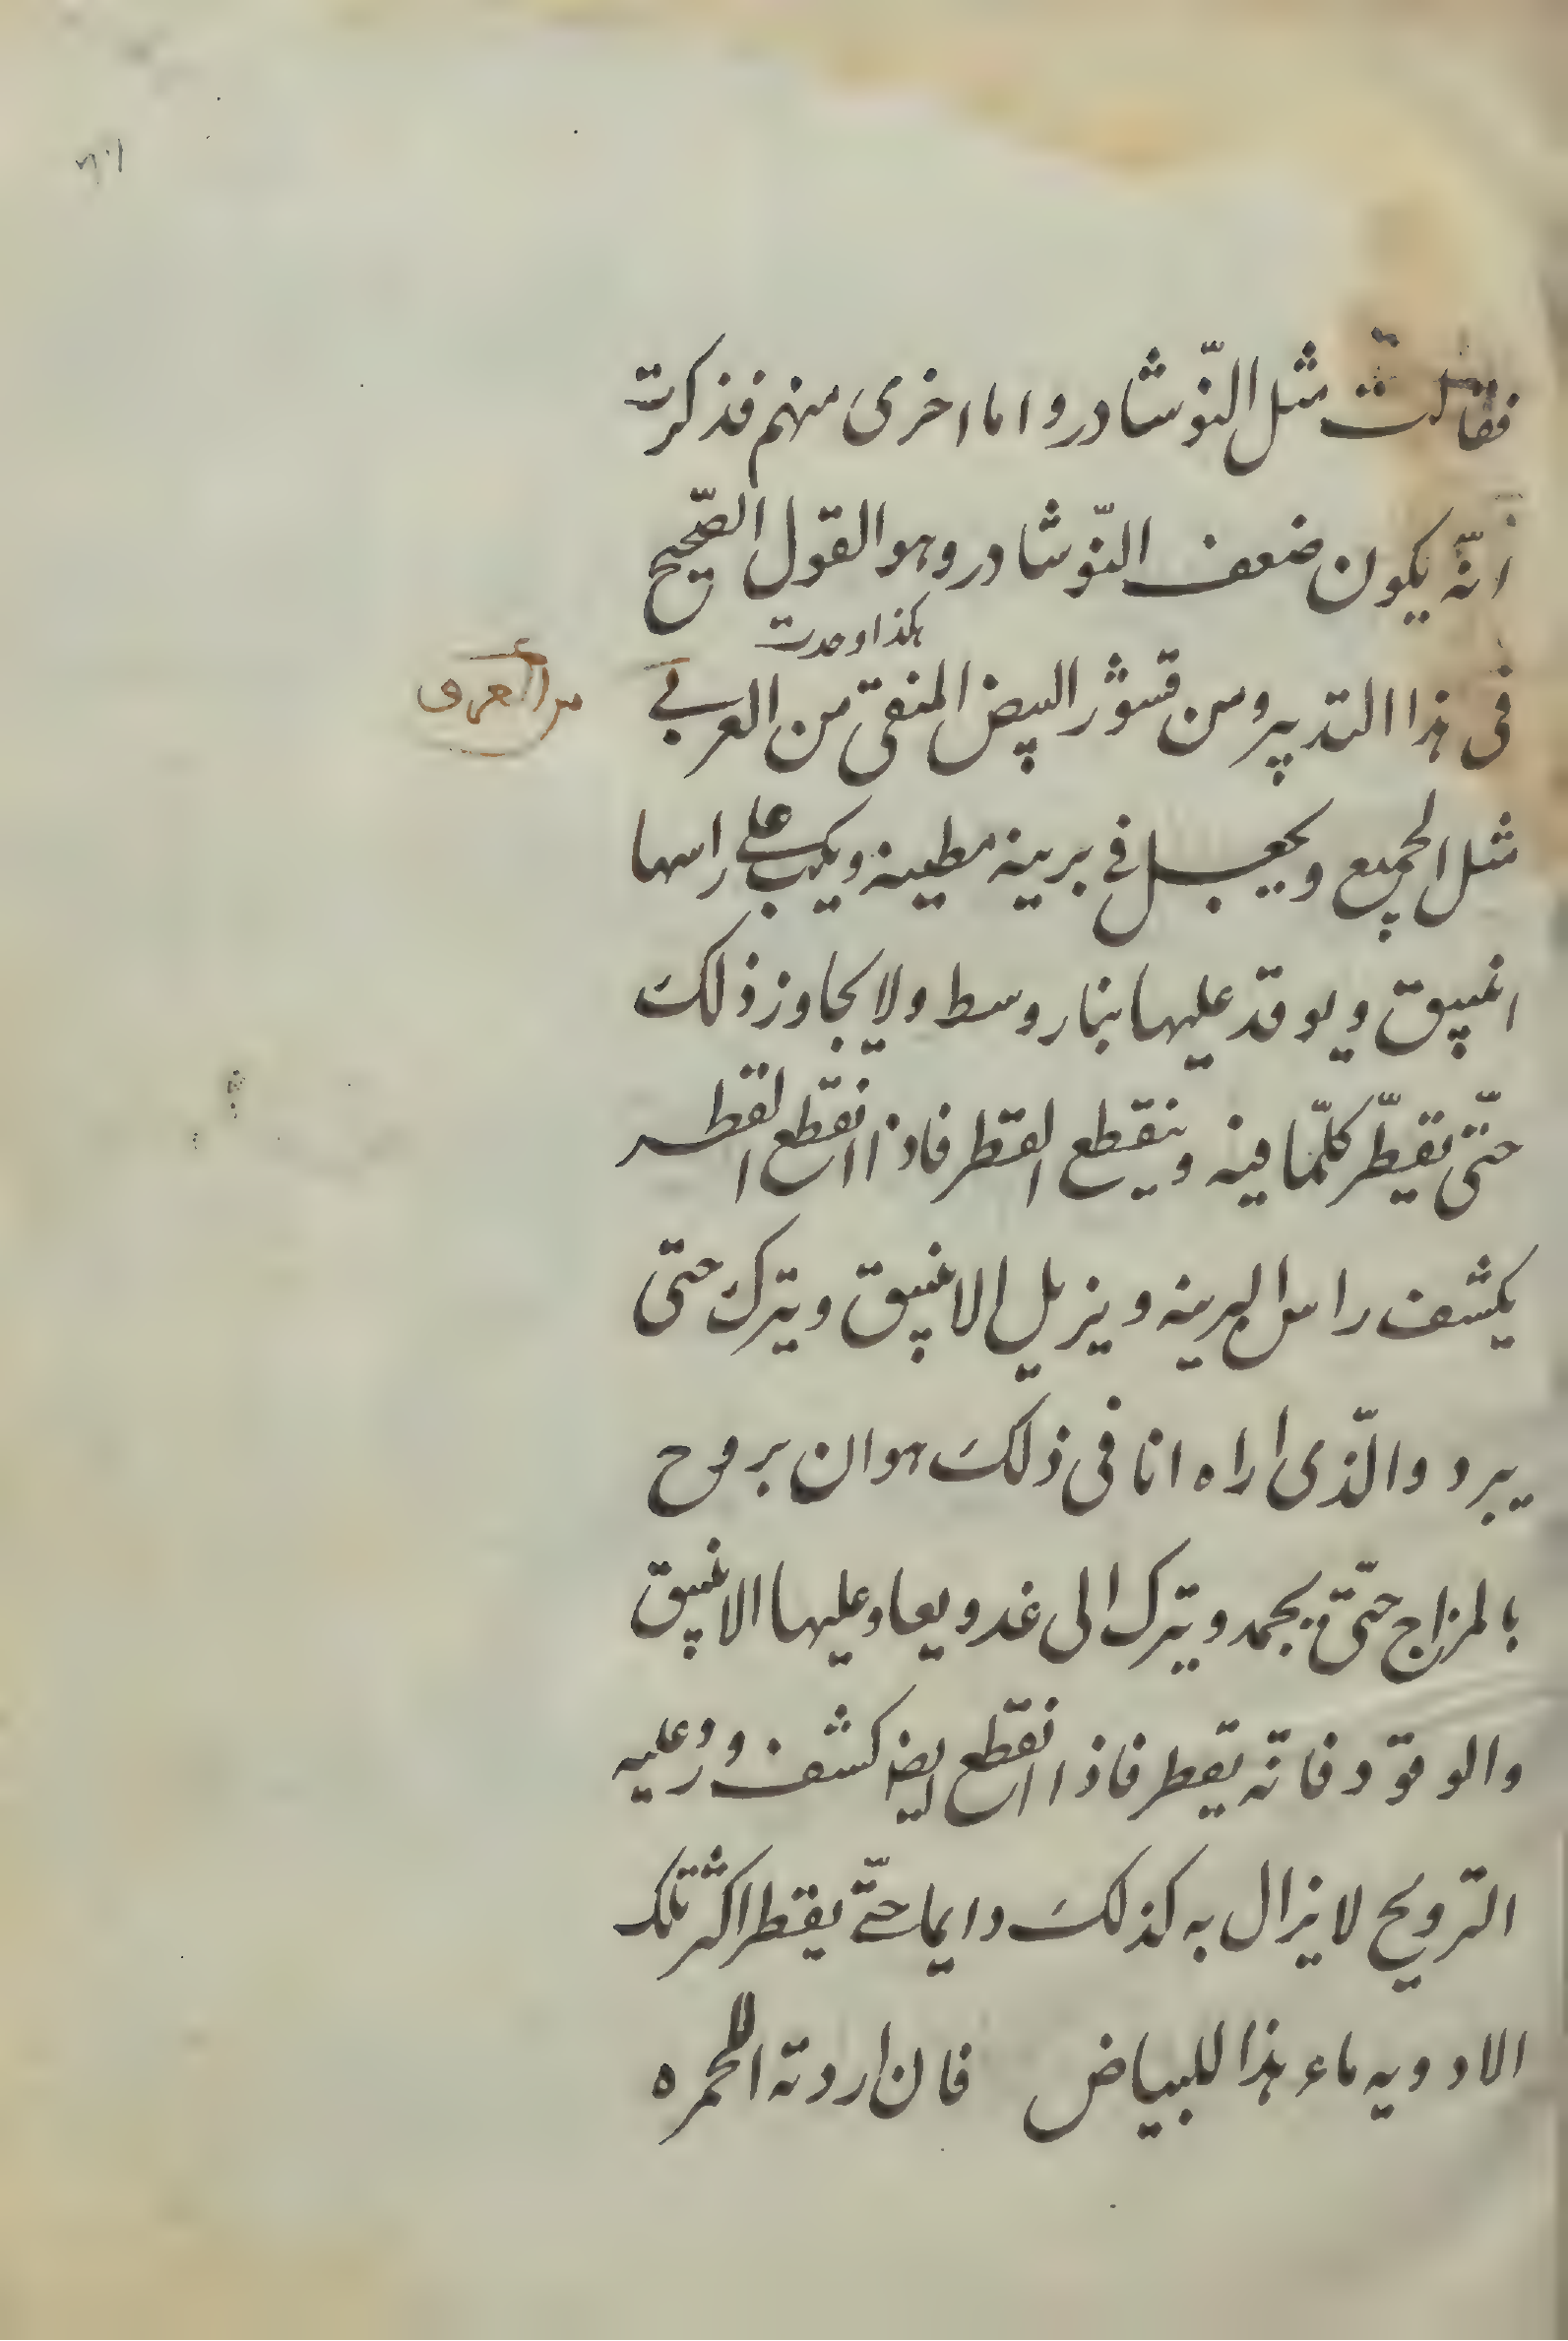 فقالت مثل النّوشادر واما اخرى منهم فذكرت
انّه يكون ضعف النّوشادر وهو القول الصّحيح
هكذا وجدت
فى هذا التدبير ومن قشور البيض المنقى من العربى
مثل الجميع ويجعل فى برنية مطينة ويكب على راسها
انبيق ويوقد عليها بنار وسط ولا يجاوز ذلك
حتّى يقطّر كلّما فيه وينقطع القطر فاذا انقطع القطر
يكشف راس البرنيه ويزيل الانبيق ويترك حتى
يبرد والّذى اراه انا فى ذلك هو ان يروح
بالمزاج حتّى يجمد ويترك الى غد ويعاد عليها الانبيق
والوقود فانه يقطر فاذا انقطع ايضا كشف ورُدّ عليه
الترويح لا يزال به كذلك دايما حتّى يقطر اكثر تلك
الادويه ماء هذا للبياض فان اردته للحمره